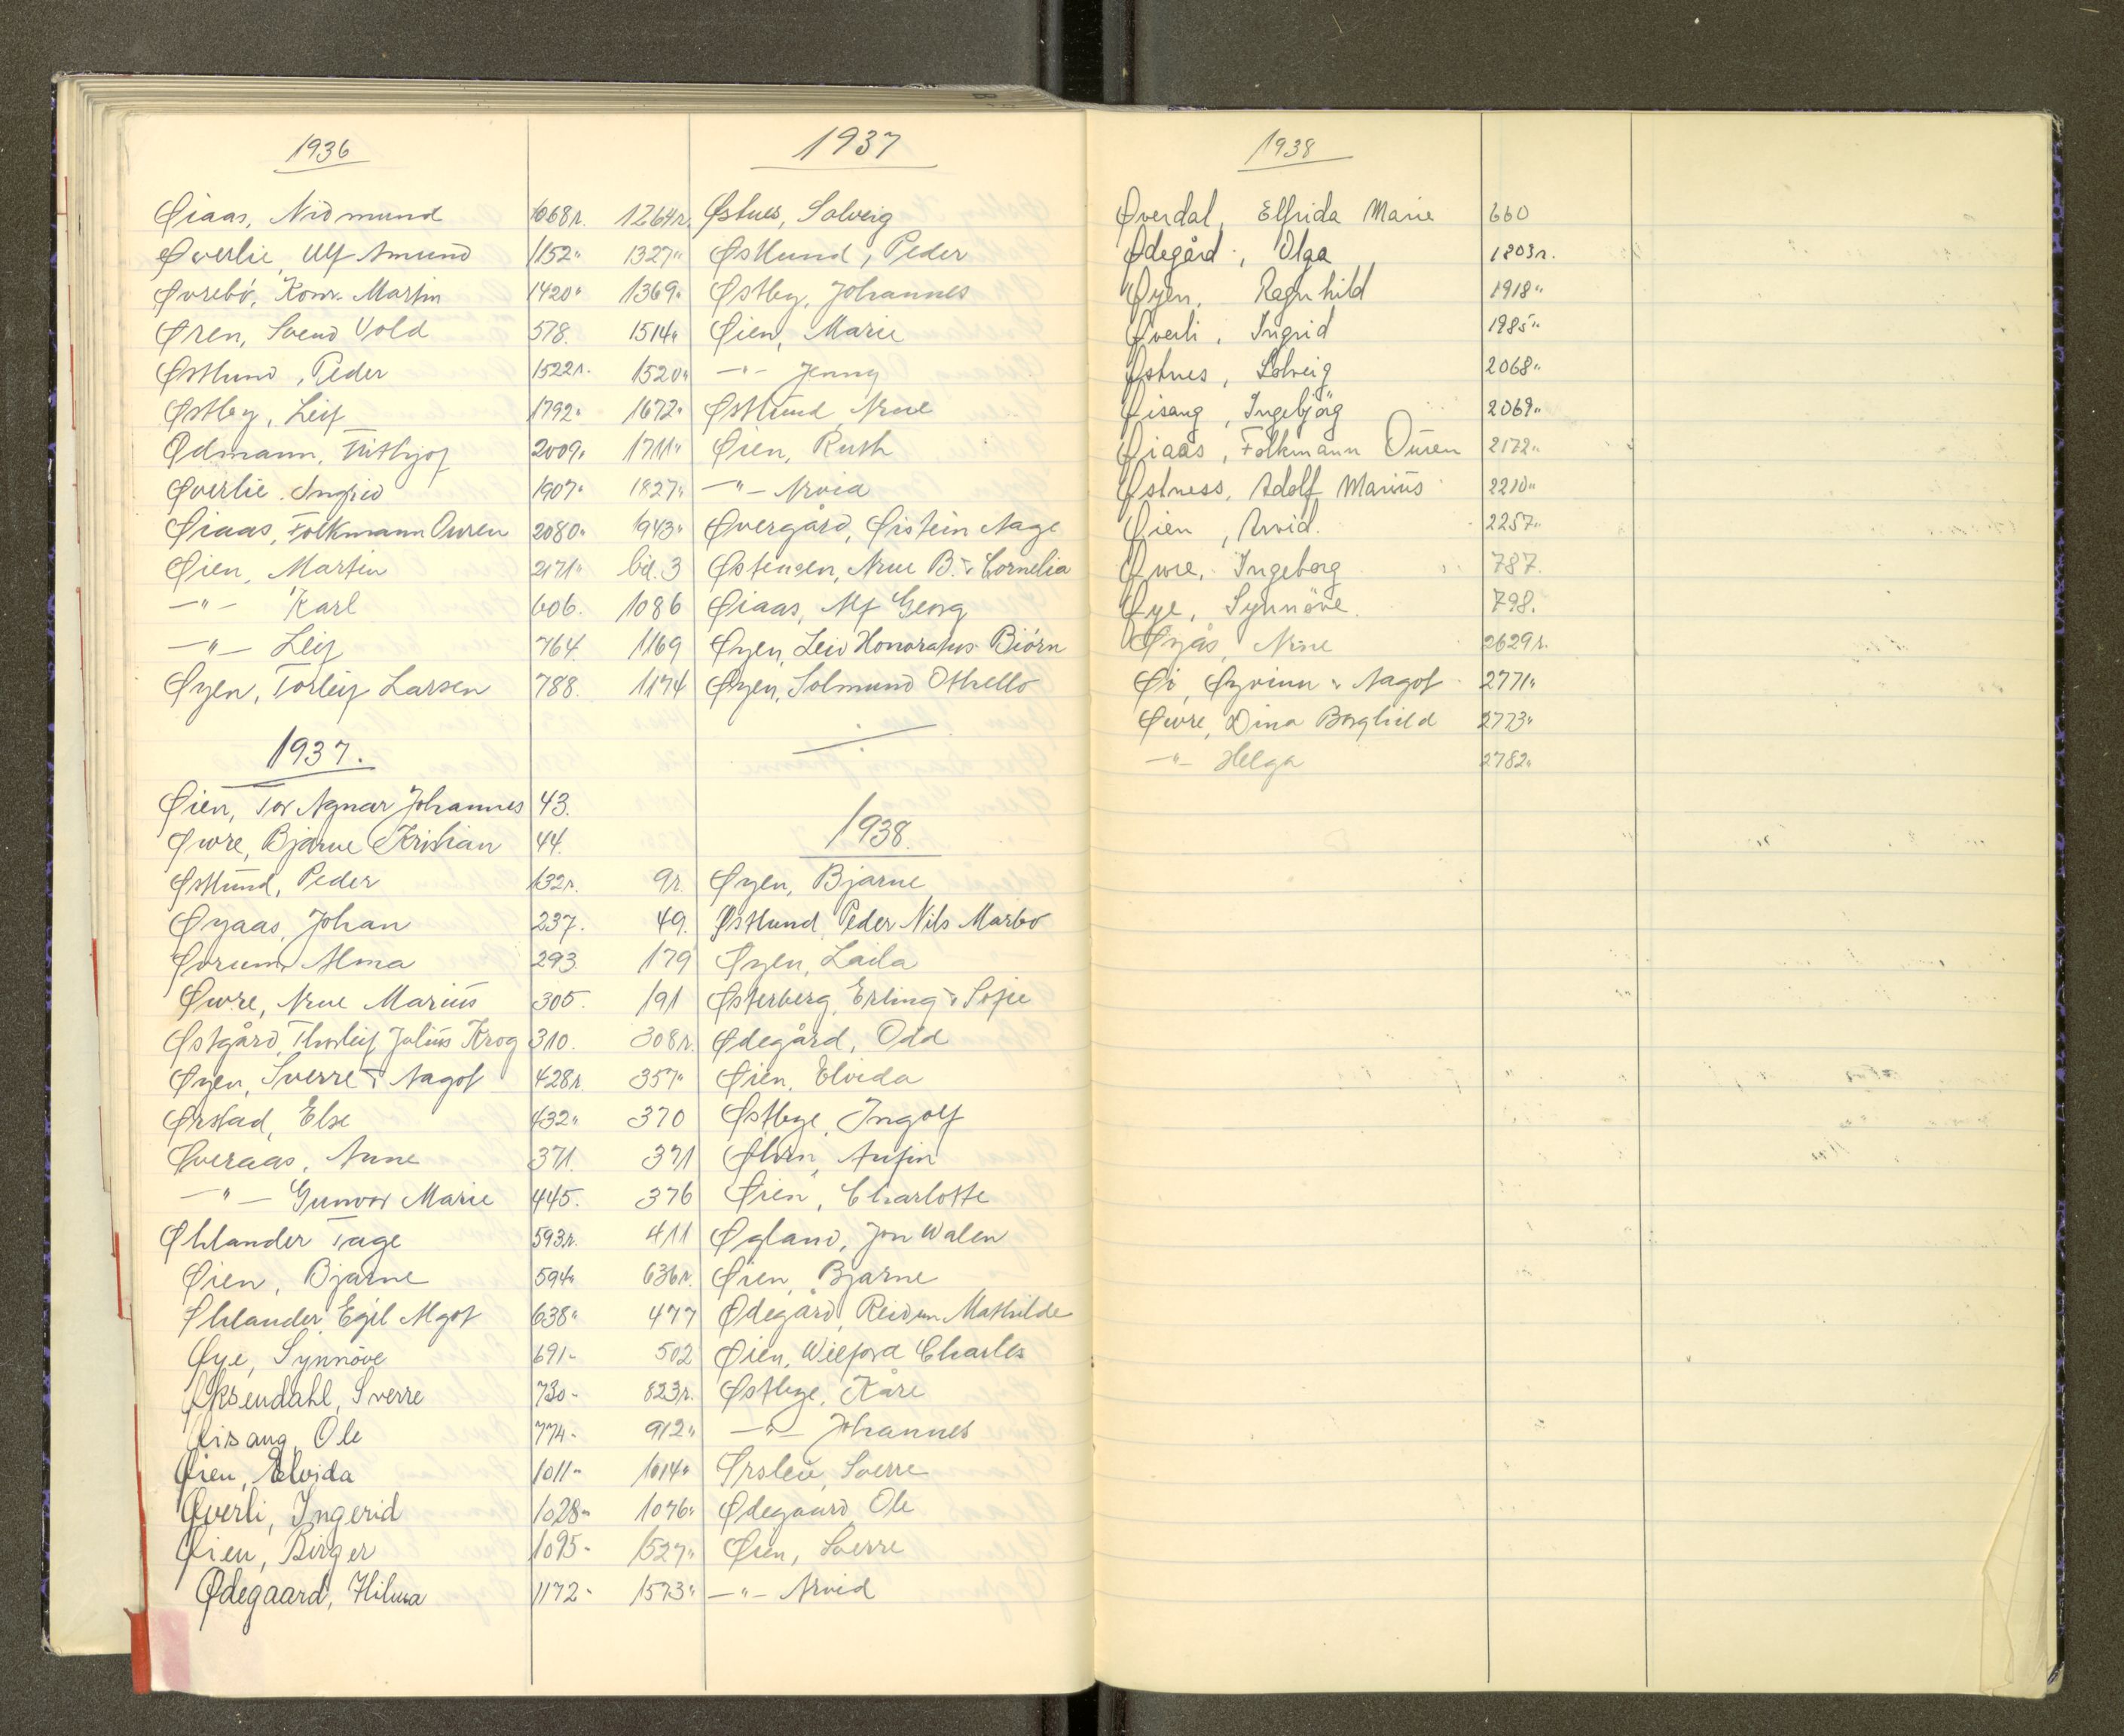 1936
Øiaas, Nidmund 1068r.
Øverlie, Ulf Amund 1152"
Øvrebö, Konr. Martin 1420"
Øren, Svend Vold 578.
Østlund, Peder 1522r.
Østby, Leif 1792"
Ødmann, Frithjof 2009"
Øverlie, Ingrid 1907"
Øiaas, Folkmann Ouren 2080"
Øien, Martin 2171"
-"- Karl 606.
-"- Leif 764.
Øyen, Torleif Larsen 788.
1937.
Øien, Tor Agnar Johannes 43.
Øwre, Bjarne Kristian 44.
Østlund, Peder 132r.
Øyaas, Johan 237.
Øvrum, Alma 293.
Øwre, Arne Marius 305.
Østgård, Thorleif Julius Krog 310.
Øyen, Sverre & Aagot 428r.
Ørstad, Else 432"
Øveraas, Anne 371.
-"- Gunvor Marie 445.
Øhlander Tage 593r.
Øien, Bjarne 594"
Øhlander, Egil Algot 638"
Øye, Synnöve 691-
Øksendahl, Sverre 730-
Øisang, Ole 774-
Øien, Elvida 1011-
Øverli, Ingerid 1028-
Øien, Birger 1095-
Ødegaard, Hilma 1172-
1937
1264r. Østnes, Solveig
1327" Østlund, Peder
1369" Østby, Johannes
1514" Øien, Marie
1520" -"- Jenny
1672" Østlund, Arne
1711" Øien, Ruth
1827" -"- Arvid
1943" Øvergård, Øistein Aage
bd. 3 Østensen, Arne B. & Cornelia
1086 Øiaas, Alf Georg
1169 Øyen, Leiv Honoratus Biörn
1174 Øyen, Solmund Othello
1938.
9r. Øyen, Bjarne
49. Østlund, Peder Nils Marbo
179 Øyen, Laila
191 Østerberg, Erling & Sofie
308r. Ødegård, Odd
357" Øien, Elvida
370 Østbye, Ingolf
371 Øhrn, Anfin
376 Øien, Charlotte
411 Øgland, Jon Walen
636r. Øien, Bjarne
477 Ødegård, Reidun Mathilde
502 Øien, Wilford Charles
823r. Østbye, Kåre
912" -"- Johannes
1014" Ørsleie, Sverre
1076" Ødegaard, Ole
1527" Øien, Sverre
1573" -"- Arvid
1938
Øverdal, Elfrida Marie 660
Ødegård, Olga 1803r.
Øyen, Ragnhild 1918"
Øverli, Ingrid 1985"
Østnes, Solveig 2068"
Øisang, Ingebjörg 2069"
Øiaas, Folkmann Ouren 2172"
Østness, Adolf Marius 2210"
Øien, Arvid. 2257"
Øwre, Ingeborg 787.
Øye, Synnöve 798.
Øyås, Arne 2629r.
Øi, Øyvinn & Aagot 2771"
Øwre, Dina Borghild 2773"
-"- Helga 2782"